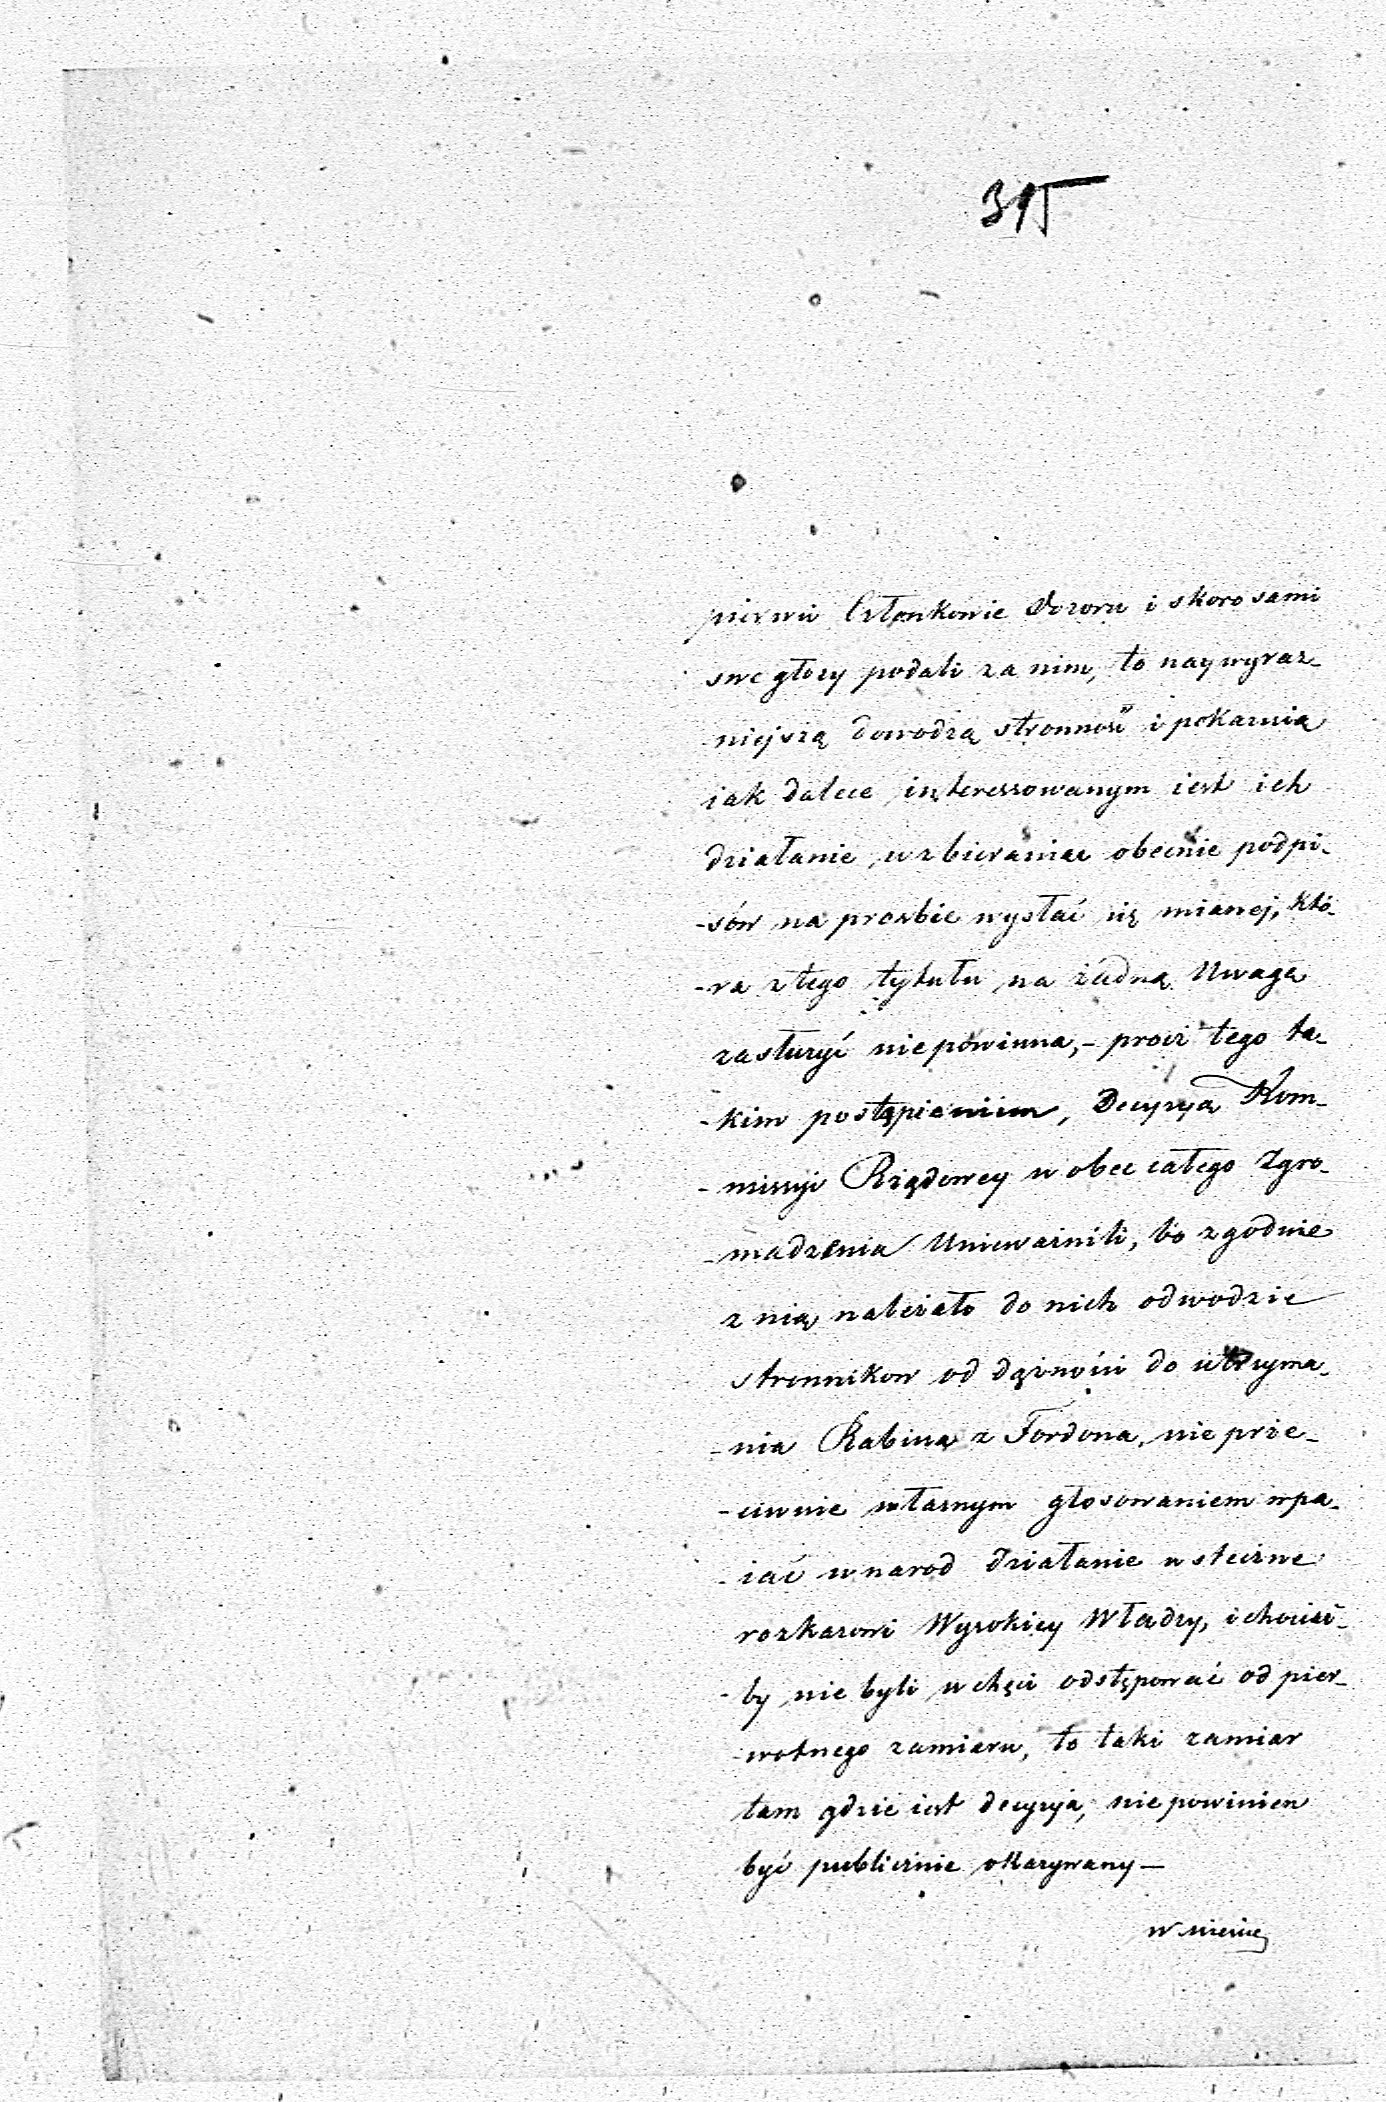 315
pierwsi Członkowie Dozoru i skoro sami
swe głosy podali za nim, to naywyraz-
niejszą dowodzą stronność i pokazuią
iak dalece interessowanym iest ich
działanie w zbieraniae obecnie podpi-
-sów na prozbie wysłać się mianej, któ-
-ra z tego tytułu na żadną Uwagę
zasłużyć nie powinna, - procz tego ta-
-kim postąpieniem, Decyzyą Kom-
-missyi Rządowey w obec całego Zgro-
-madzenia Unieważnili, bo zgodnie
z nią należało do nich odwodzić
stronnikow od dążności do utrzyma-
-nia Rabina z Fordona, nie prze-
-ciwnie własnym głosowaniem wpa-
-iać w narod działanie wsteczne
rozkazowi Wysokiey Władzy, i chociaż-
-by nie byli w chęci odstępować od pier-
-wotnego zamiaru, to taki zamiar
tam gdzie iest decyzyja, nie powinien
być publicznie okazywany —
w niesie